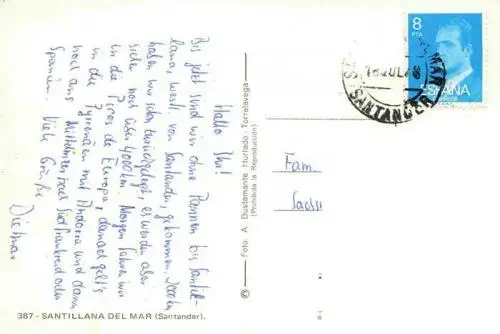 Hallo Ihr!
Bis jetzt sind wir ohne Pannen bis Santil-
lana, westl. von Santander, gekommen. 2000 km
haben wir schon zurückgelegt, es werden aber
sicher noch über 4000 km. Morgen fahren wir
in die Picos de Europa, danach geht's
in die Pyrenäen mit Andorra und dann
noch ans Mittelmeer nach Südfrankreich oder
Spanien. Viele Grüße
Dietmar
387 - SANTILLANA DEL MAR (Santander).
© Foto. A. Bustamante Hurtado - Torrelavega
(Prohibida la Reproducción)
8
PTA
ESPAÑA
CORREOS
SANTANDER
Fam.
Sachs